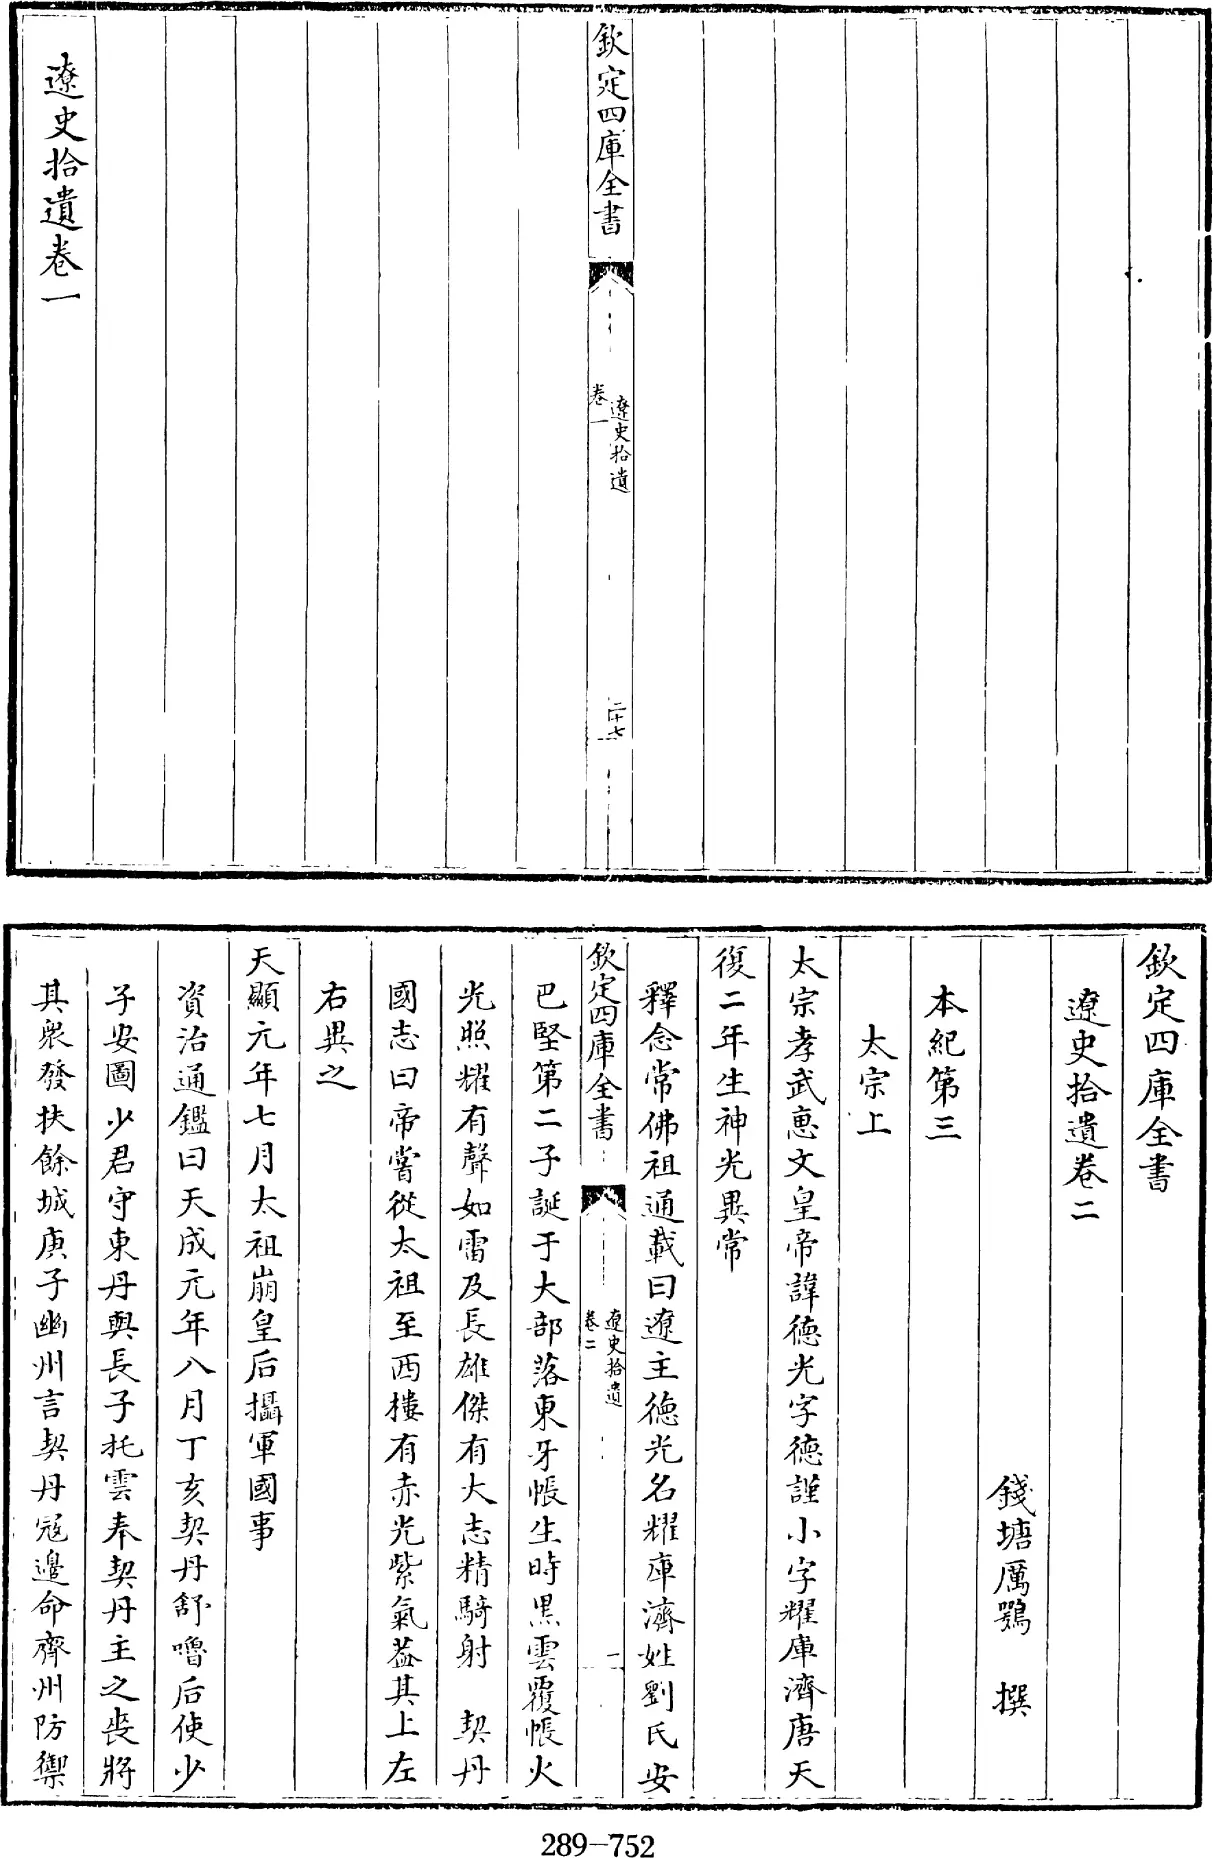 欽定四庫全書
遼史拾遺
卷一
二十七
遼史拾遺卷一
欽定四庫全書
遼史拾遺卷二
錢塘厲鶚　撰
本紀第三
太宗上
太宗孝武惠文皇帝諱德光字德謹小字耀庫濟唐天
復二年生神光異常
釋念常佛祖通載曰遼主德光名耀庫濟姓劉氏安
欽定四庫全書
遼史拾遺
卷二
一
巴堅第二子誕于大部落東牙帳生時黑雲覆帳火
光照耀有聲如雷及長雄傑有大志精騎射　契丹
國志曰帝嘗從太祖至西樓有赤光紫氣葢其上左
右異之
天顯元年七月太祖崩皇后攝軍國事
資治通鑑曰天成元年八月丁亥契丹舒嚕后使少
子安圖少君守東丹與長子托雲奉契丹主之喪將
其衆發扶餘城庚子幽州言契丹冦邊命齊州防禦
289-752